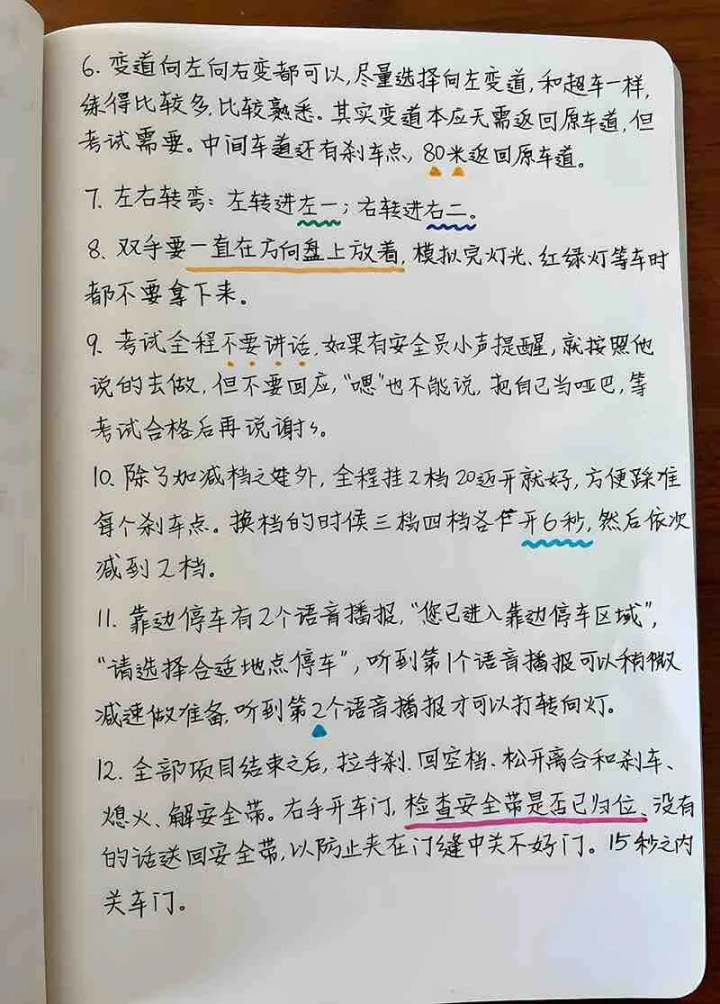 6. 变道向左向右变都可以,尽量选择向左变道,和超车一样,
练得比较多,比较熟悉。其实变道本应无需返回原车道,但
考试需要。中间车道还有刹车点,80米返回原车道。
7. 左右转弯:左转进左一;右转进右二。
8. 双手要一直在方向盘上放着,模拟完灯光、红绿灯等车时
都不要拿下来。
9. 考试全程不要讲话,如果有安全员小声提醒,就按照他
说的去做,但不要回应,“嗯”也不能说,把自己当哑巴,等
考试合格后再说谢谢。
10. 除了加减档之外,全程挂2档20迈开就好,方便踩准
每个刹车点。换档的时候三档四档各开6秒,然后依次
减到2档。
11. 靠边停车有2个语音播报,“您已进入靠边停车区域”,
“请选择合适地点停车”,听到第1个语音播报可以稍微
减速做准备,听到第2个语音播报才可以打转向灯。
12. 全部项目结束之后,拉手刹、回空档、松开离合和刹车、
熄火、解安全带。右手开车门,检查安全带是否已归位、没有
的话送回安全带,以防止夹在门缝中关不好门。15秒之内
关车门。